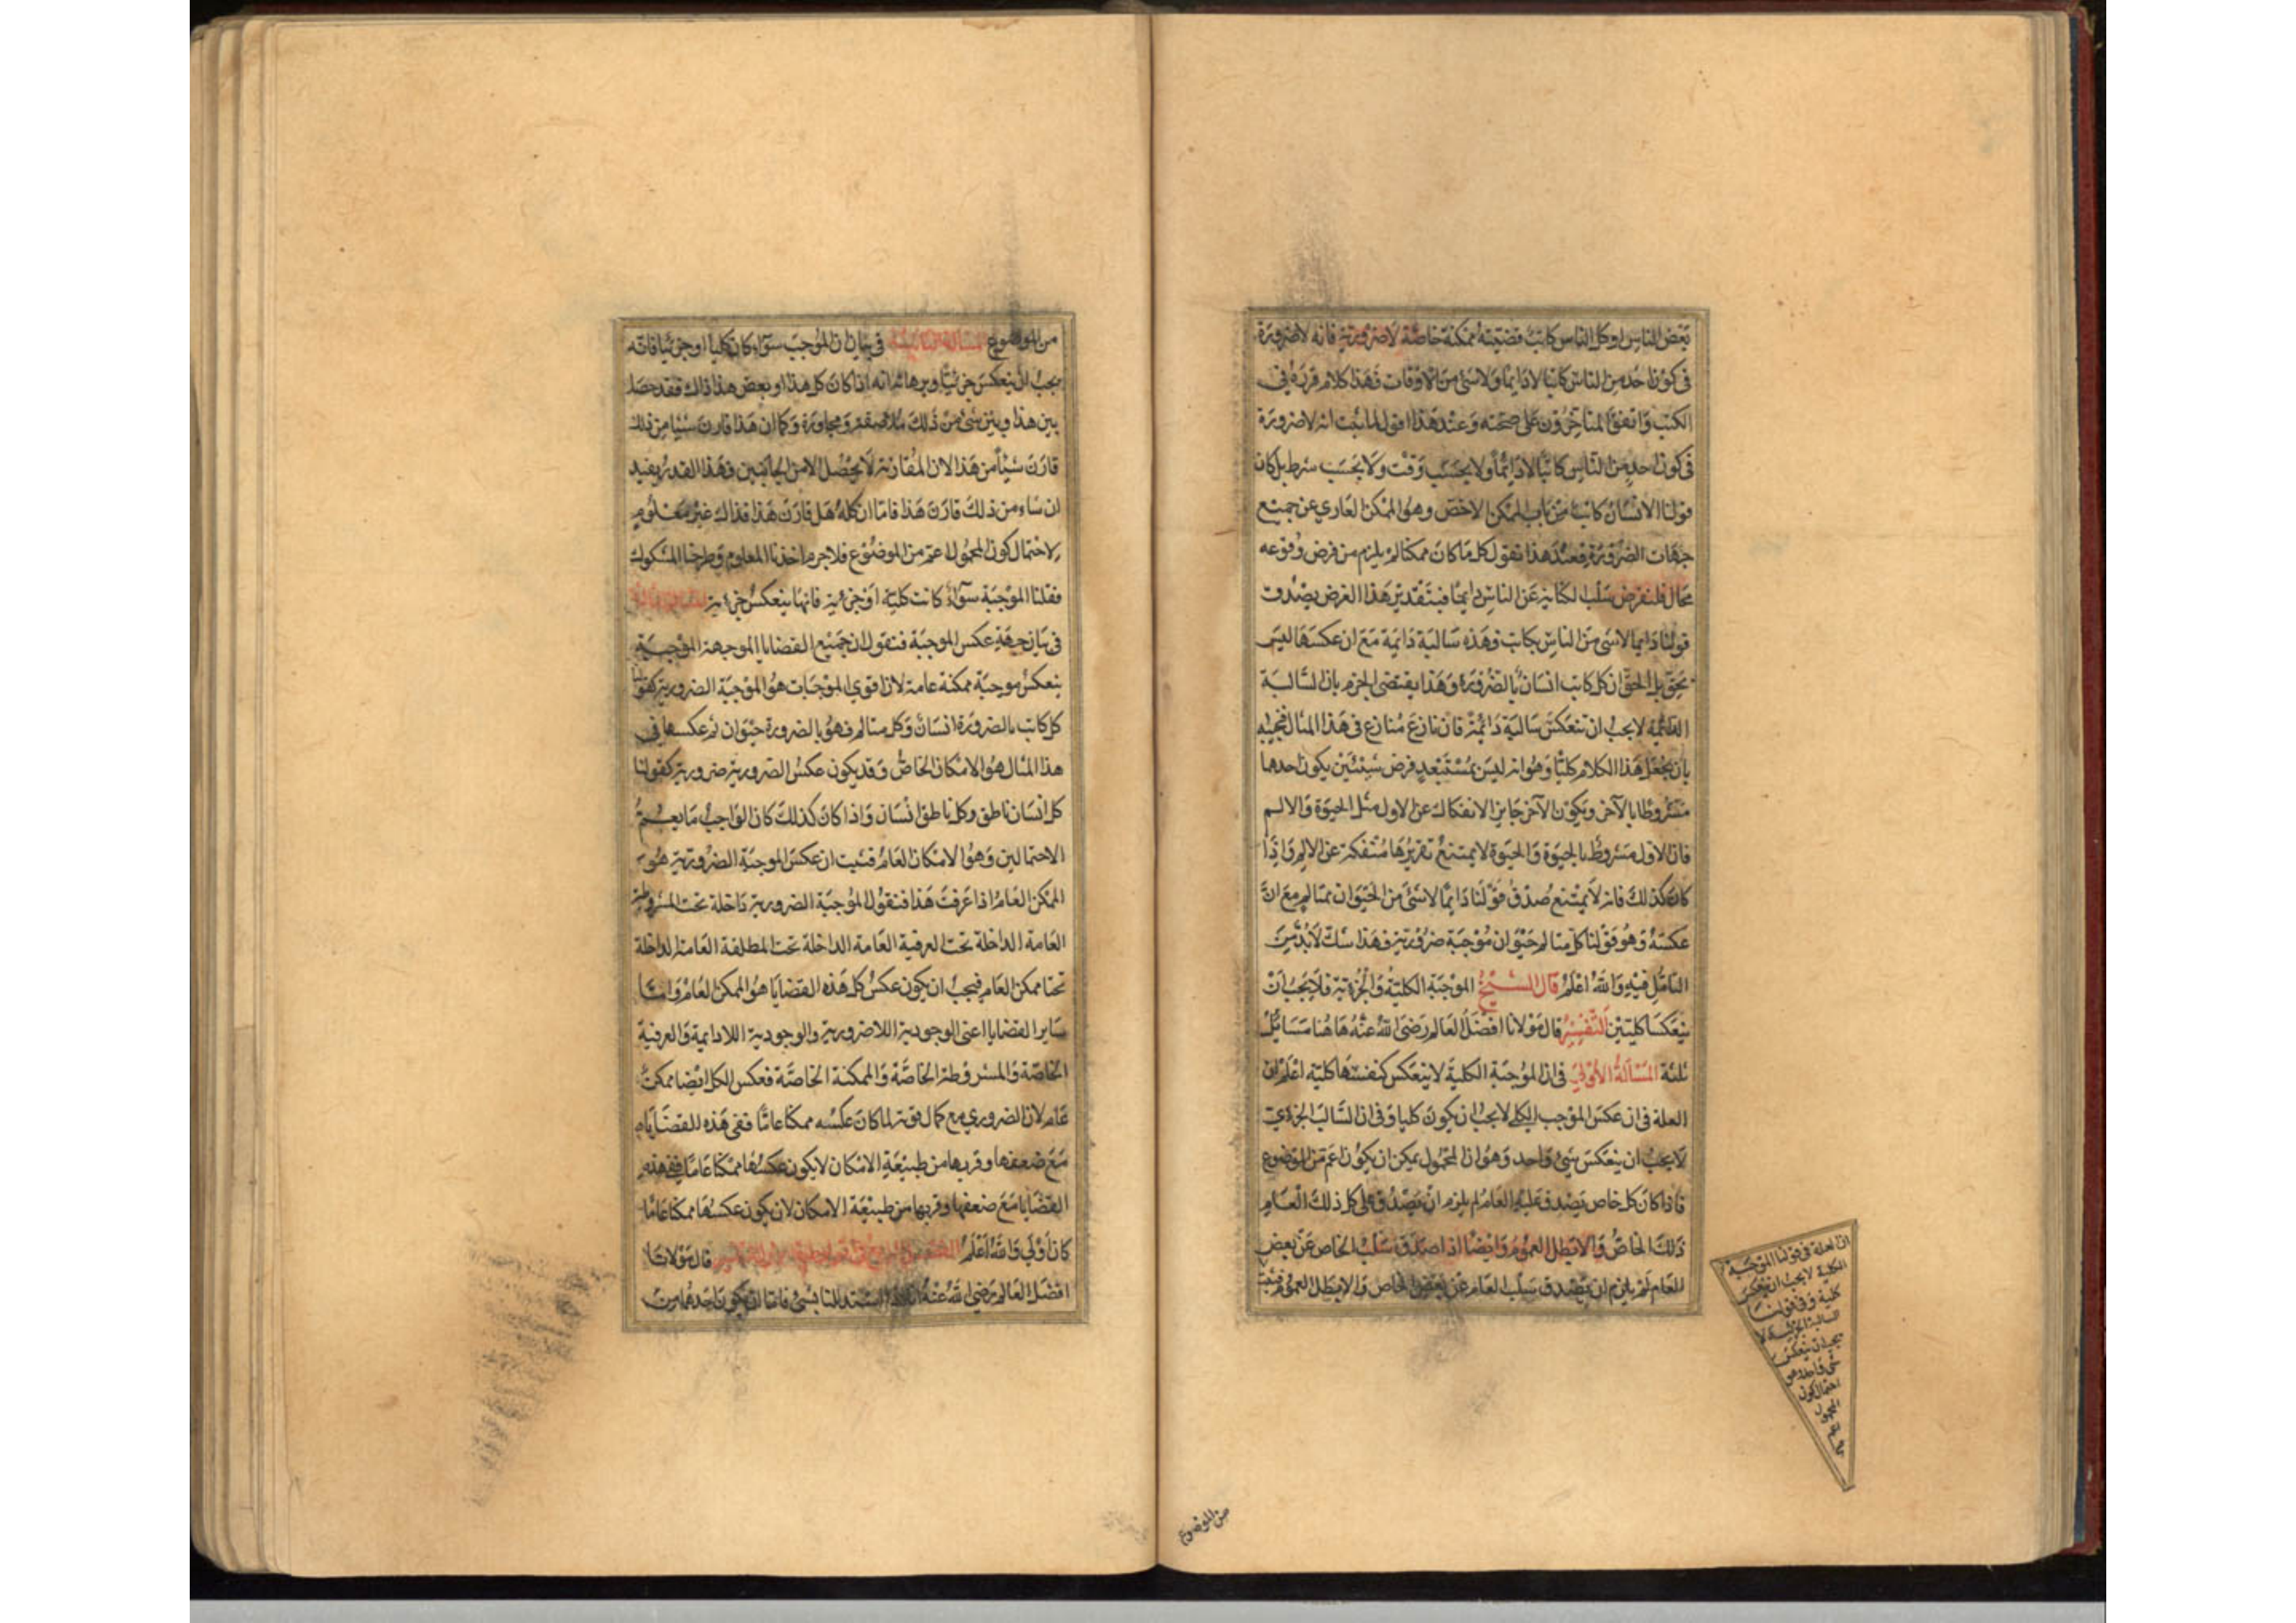 بعض الناس او كل الناس كاتب قضيته ممكنة خاصة لاضرورية فانه لاضرورة
فى كون احد من الناس كاتبا لادايما ولاشئ من الاوقات فهذا كلام قرره فى
الكتب واتفق المتاخرون على صحته وعند هذا اقول لما ثبت انه لاضرورة
فى كون احد من الناس كاتبا لادائما ولا بحسب وقت ولا بحسب شرط بل كان
قولنا الانسان كاتب من باب الممكن الاخص وهو الممكن العاري عن جميع
جهات الضرورة فعند هذا نقول كل ما كان ممكنا لم يلزم من فرض وقوعه
محال فلنفرض سلب الكتابة عن الناس دايما فبتقدير هذا الفرض يصدق
قولنا دايما لاشئ من الناس بكاتب وهذه سالبة دايمة مع ان عكسها ليس
بحق بل الحق ان كل كاتب انسان بالضرورة وهذا يقتضى الجزم بان السالبة
الدائمة لا يجب ان تنعكس سالبة دائمة فان نازع منازع فى هذا المثال فنجيبه
بان نجعل هذا الكلام كليا وهو انه ليس بمستبعد فرض شيئين يكون احدهما
مشروطا بالآخر ويكون الآخر جايز الانفكاك عن الاول مثل الحيوة والالم
فان الاول مشروط بالحيوة والحيوة لا يمتنع تقريرها منفكة عن الالم واذا
كان كذلك فانه لا يمتنع صدق قولنا دايما لاشئ من الحيوان بمتالم مع ان
عكسه وهو قولنا كل متالم حيوان موجبة ضرورية فهذا شك لابد من
التامل فيه والله اعلم قال الشيخ الموجبة الكلية والجزءية فلا يجب ان
ينعكسا كليتين التفسير قال مولانا افضل العالم رضى الله عنه هاهنا مسايل
ثلثة المسئلة الاولى فى ان الموجبة الكلية لا ينعكس كنفسها كلية اعلم ان
العلة فى ان عكس الموجب الكلى لا يجب ان يكون كليا وفى ان السالب الجزءي
لا يجب ان ينعكس شئ واحد وهو ان المحمول يمكن ان يكون اعم من الموضوع
فاذا كان كل خاص يصدق عليه العام لم يلزم ان يصدق على كل ذلك العام
ذلك الخاص والا بطل العموم وايضا اذا صدق سلب الخاص عن بعض
العام لم يلزم ان يصدق سلب العام عن بعض الخاص والا بطل العموم فثبت
ان العلة فى قولنا الموجبة
الكلية لا يجب ان ينعكس
كلية وفى قولنا
السالبة الجزئية لا
يجب ان ينعكس
شئ واحد وهو
احتمال كون
المحمول
من الموضوع
من الموضوع المسئلة الثانية فى بيان ان الموجب سواء كان كليا او جزئيا فانه
يجب ان ينعكس جزئيا وبرهانه انه اذا كان كل هذا او بعض هذا ذاك فقد حصل
بين هذا وبين شئ من ذلك ملاصقة ومجاورة وكما ان هذا قارن شيئا من ذلك
قارن شيئا من هذا لان المقارنة لا يحصل الا من الجانبين فهذا القدر يفيد
ان شاء من ذلك قارن هذا فاما ان كله هل قارن هذا فذاك غير معلوم
لاحتمال كون المحمول اعم من الموضوع فلا جرم اخذنا المعلوم وطرحنا المشكوك
فقلنا الموجبة سواء كانت كلية او جزءية فانها ينعكس جزءية
فى بيان جهة عكس الموجبة فنقول ان جميع القضايا الموجهة الموجبة
ينعكس موجبة ممكنة عامة لان اقوى الموجبات هو الموجبة الضرورية كقولنا
كل كاتب بالضرورة انسان وكل متالم فهو بالضرورة حيوان ثم عكسها فى
هذا المثال هو الامكان الخاص وقد يكون عكس الضرورية ضرورية كقولنا
كل انسان ناطق وكل ناطق انسان واذا كان كذلك كان الواجب ما يعم
الاحتمالين وهو الامكان العام فثبت ان عكس الموجبة الضرورية هو
الممكن العام اذا عرفت هذا فنقول الموجبة الضرورية داخلة تحت المشروطة
العامة الداخلة تحت العرفية العامة الداخلة تحت المطلقة العامة الداخلة
تحت ممكن العام فيجب ان يكون عكس كل هذه القضايا هو الممكن العام واما
ساير القضايا اعنى الوجودية اللاضرورية والوجودية اللادايمة والعرفية
الخاصة والمشروطة الخاصة والممكنة الخاصة فعكس الكل ايضا ممكن
عام لان الضروري مع كمال قوته لما كان عكسه ممكنا عاما ففى هذه القضايا
مع ضعفها وقربها من طبيعة الامكان لا يكون عكسها ممكنا عاما ففى هذه
القضايا مع ضعفها وقربها من طبيعة الامكان لان يكون عكسها ممكنا عاما
كان اولى والله اعلم قال مولانا
افضل العالم رضى الله عنه